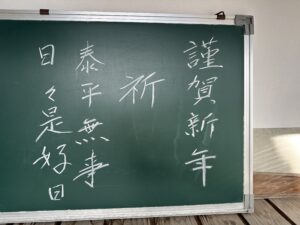 謹賀新年
祈
泰平無事
日々是好日